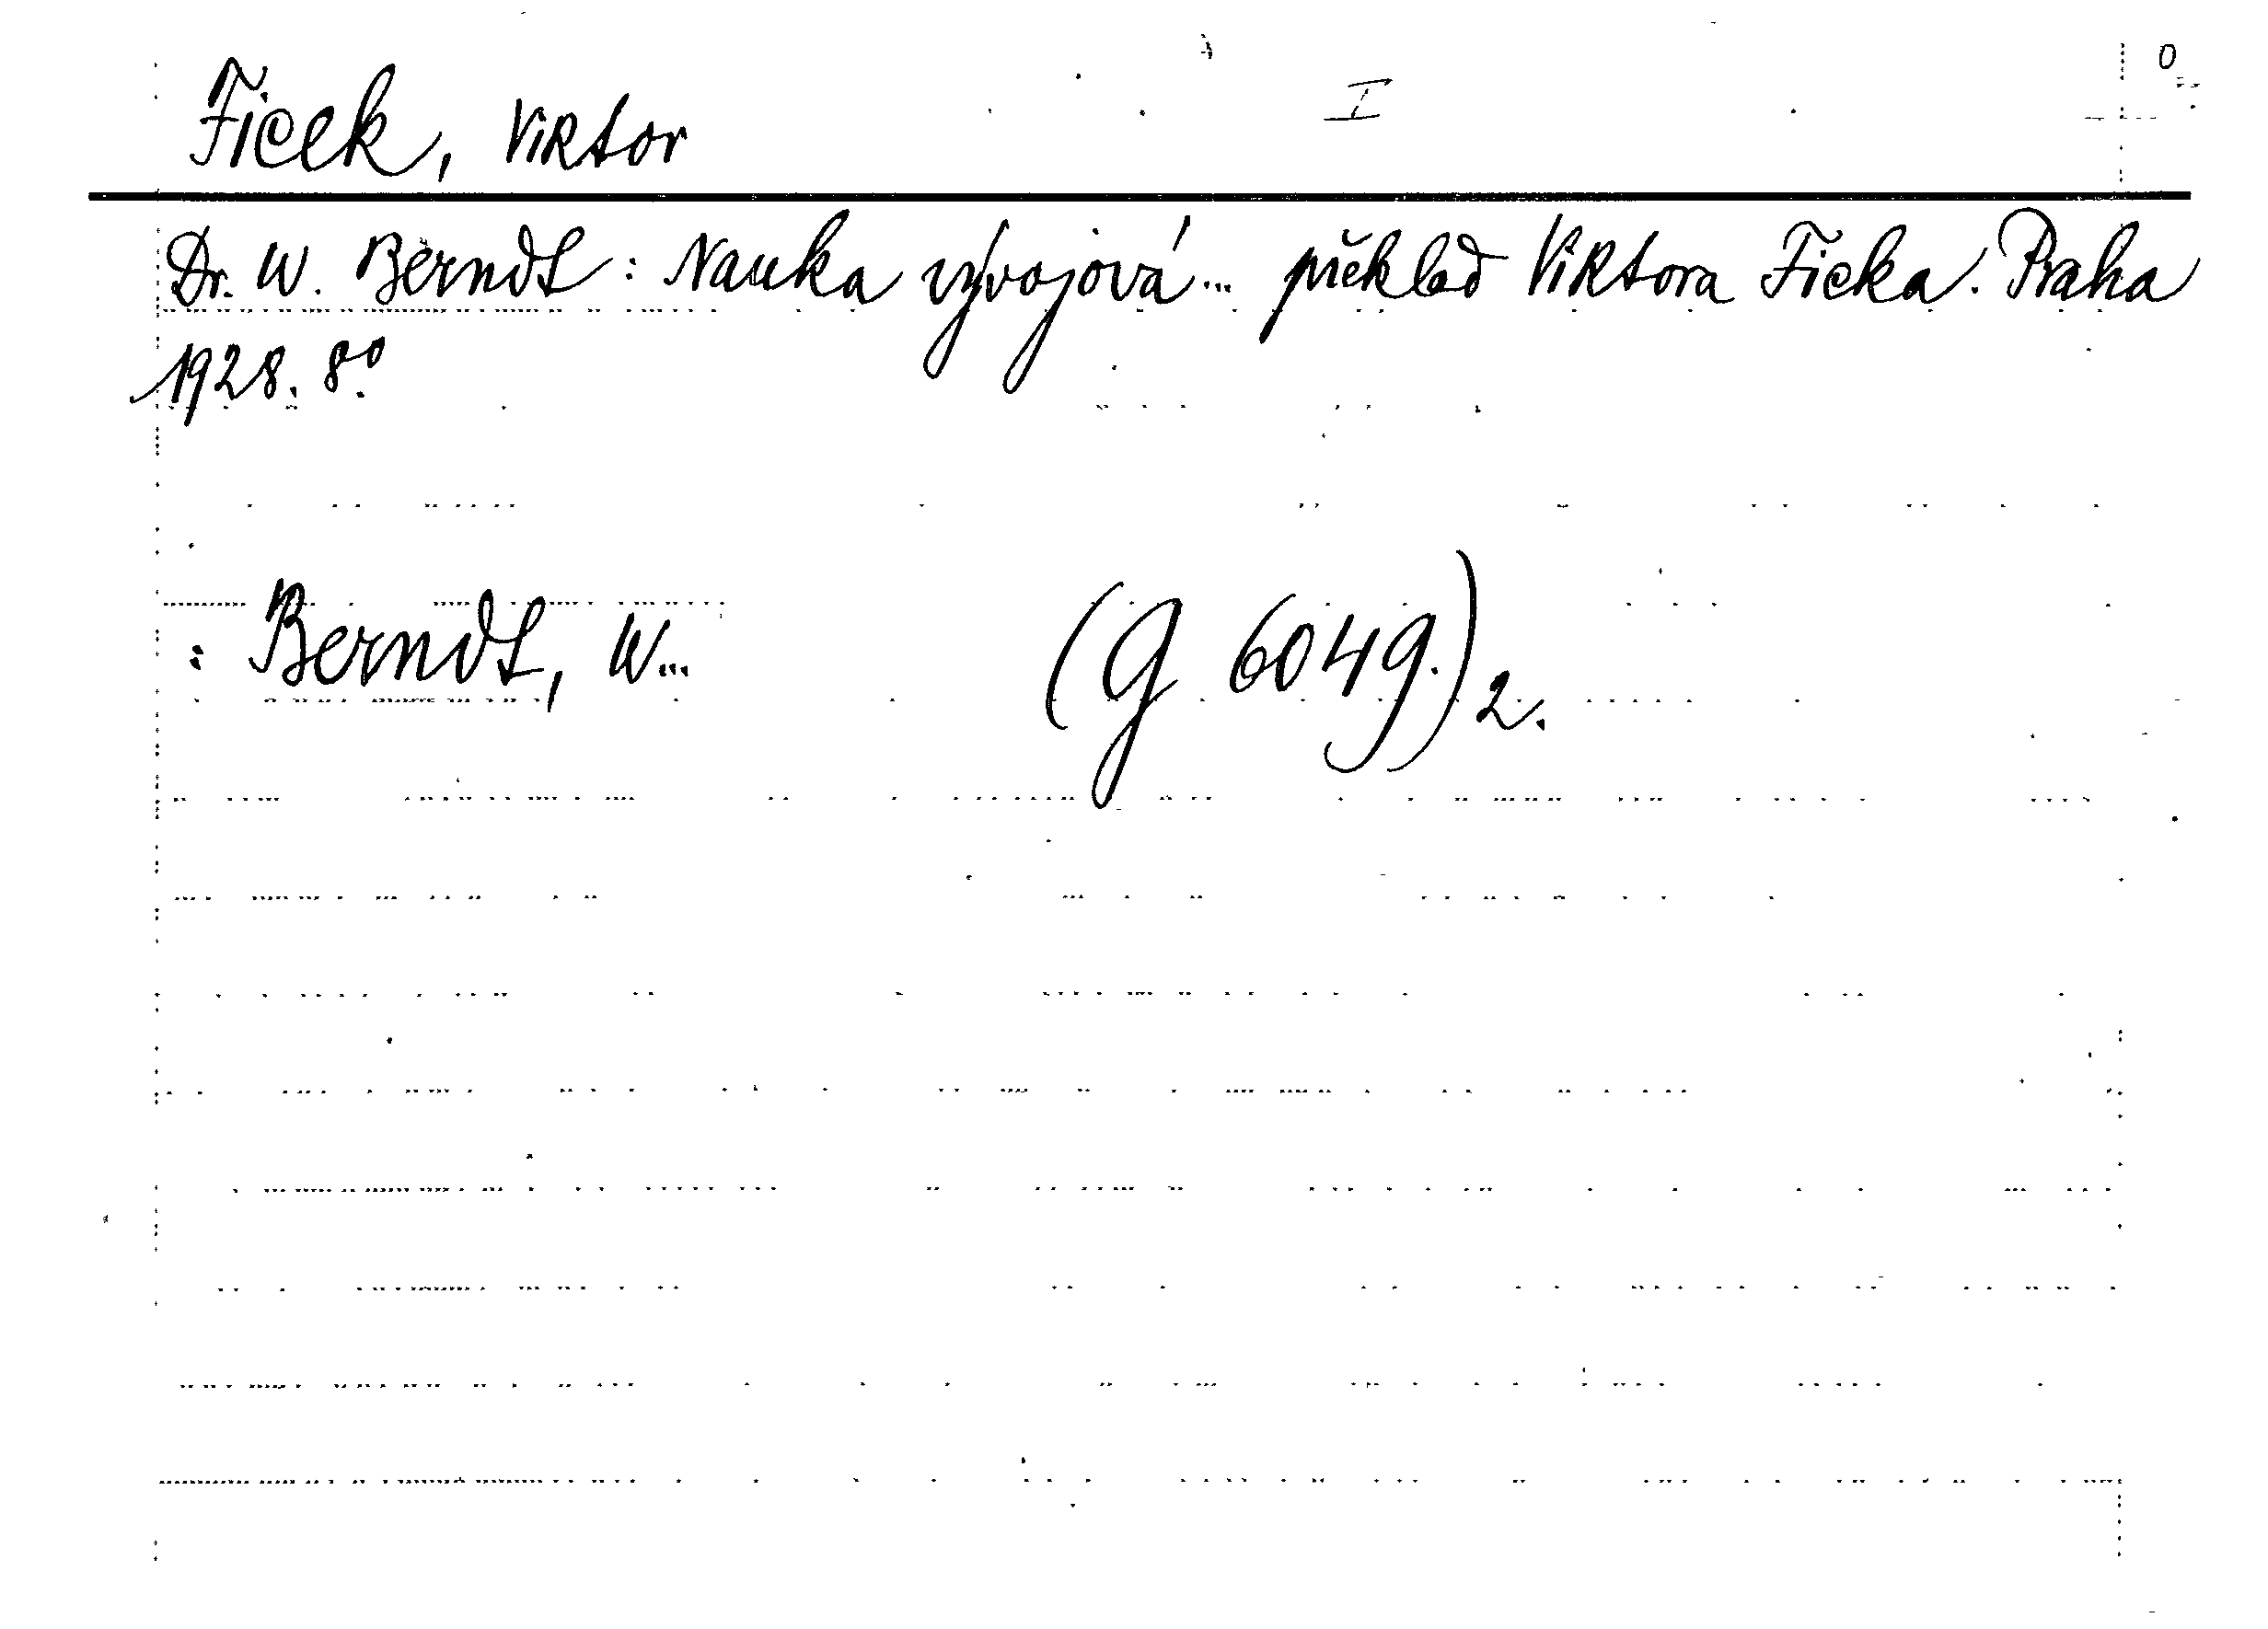 Ficek, Viktor I 0
Dr. W. Berndt: Nauka vývojová... překlad Viktora Ficka. Praha
1928. 8°.
: Berndt, W... (G 6049.)2.